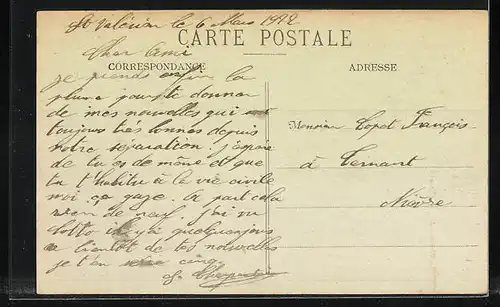 St Valérien le 6 Mars 1912
CARTE POSTALE
Cher Ami
CORRESPONDANCE
ADRESSE
je prends enfin la
plume pour te donner
de mes nouvelles qui sont
toujours très bonnes depuis
notre séparation. J'espère
de tu es de même et que
tu t'habitu à la vie civile
moi ça gaze. A part cela
rien de neuf. J'ai vu
il y a quelques jours
a bientôt de tes nouvelles
je t'en cinq
Monsieur Copet François
à Ternant
Nièvre